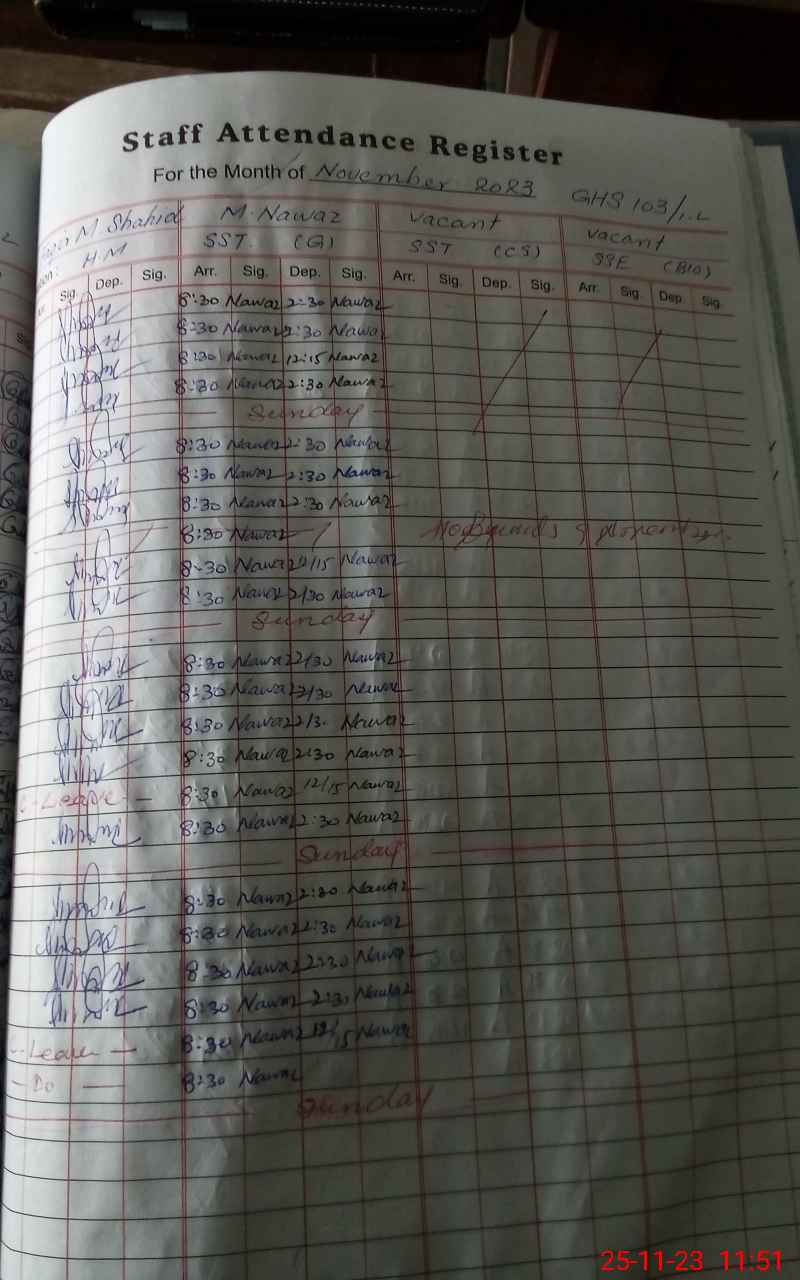 Staff Attendance Register
For the Month of November 2023 GHS 103/1.L
M. Shahid M. Nawaz vacant vacant
H.M SST (G) SST (CS) SSE (BIO)
Sig. Dep. Sig. Arr. Sig. Dep. Sig. Arr. Sig. Dep. Sig. Arr. Sig. Dep. Sig.
8:30 Nawaz 2:30 Nawaz
8:30 Nawaz 2:30 Nawaz
8:30 Nawaz 12:15 Nawaz
8:30 Nawaz 2:30 Nawaz
Sunday
8:30 Nawaz 2:30 Nawaz
8:30 Nawaz 2:30 Nawaz
8:30 Nawaz 2:30 Nawaz
8:30 Nawaz
8:30 Nawaz 12/15 Nawaz
8:30 Nawaz 2/30 Nawaz
Sunday
8:30 Nawaz 2/30 Nawaz
8:30 Nawaz 2/30 Nawaz
8:30 Nawaz 2/3. Nawaz
8:30 Nawaz 2:30 Nawaz
Leave 8:30 Nawaz 12/15 Nawaz
8:30 Nawaz 2:30 Nawaz
Sunday
8:30 Nawaz 2:30 Nawaz
8:30 Nawaz 2:30 Nawaz
8:30 Nawaz 2:30 Nawaz
8:30 Nawaz 2:30 Nawaz
Leave 8:30 Nawaz 12/15 Nawaz
Do 8:30 Nawaz
Sunday
25-11-23 11:51